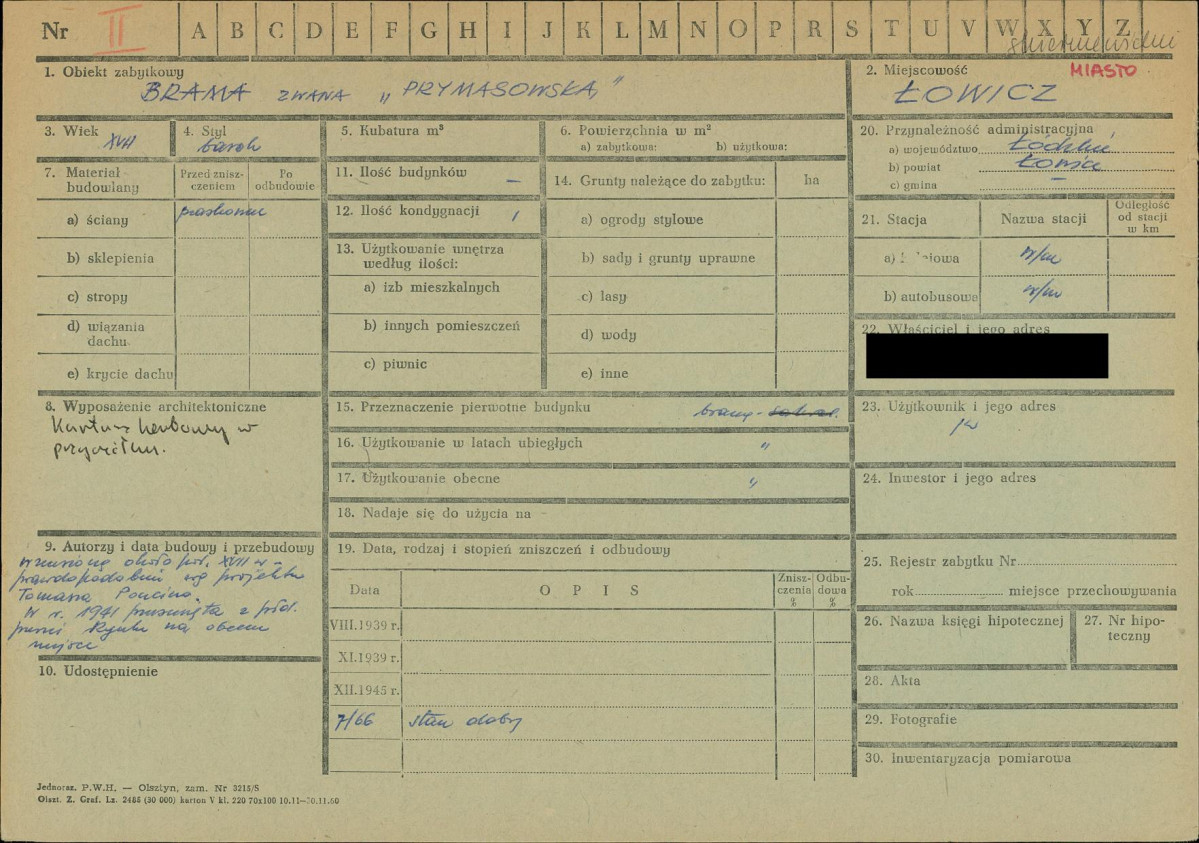 Nr II A B C D E F G H I J K L M N O P R S T U V W X Y Z
skierniewickie
1. Obiekt zabytkowy
BRAMA ZWANA „PRYMASOWSKĄ"
2. Miejscowość MIASTO
ŁOWICZ
3. Wiek
XVII
4. Styl
barok
5. Kubatura m³
6. Powierzchnia w m²
a) zabytkowa: b) użytkowa:
20. Przynależność administracyjna
a) województwo Łódzkie
b) powiat Łowicz
c) gmina –
7. Materiał budowlany
Przed zniszczeniem
Po odbudowie
a) ściany piaskowiec
b) sklepienia
c) stropy
d) wiązania dachu
e) krycie dachu
11. Ilość budynków –
12. Ilość kondygnacji 1
13. Użytkowanie wnętrza według ilości:
a) izb mieszkalnych
b) innych pomieszczeń
c) piwnic
14. Grunty należące do zabytku: ha
a) ogrody stylowe
b) sady i grunty uprawne
c) lasy
d) wody
e) inne
21. Stacja
Nazwa stacji
Odległość od stacji w km
a) iowa w/m
b) autobusowa w/m
22. Właściciel i jego adres
8. Wyposażenie architektoniczne
Kartusz herbowy w
przyczółku.
15. Przeznaczenie pierwotne budynku brama -
16. Użytkowanie w latach ubiegłych „
17. Użytkowanie obecne „
18. Nadaje się do użycia na -
23. Użytkownik i jego adres
jw
24. Inwestor i jego adres
9. Autorzy i data budowy i przebudowy
wzniesiona około poł. XVII w –
prawdopodobnie wg projektu
Tomasza Poncino.
W r. 1941 przesunięta z płd.
pierzei Rynku na obecne
miejsce
19. Data, rodzaj i stopień zniszczeń i odbudowy
Data
OPIS
Zniszczenia %
Odbudowa %
VIII.1939 r.
XI.1939 r.
XII.1945 r.
7/66 stan dobry
25. Rejestr zabytku Nr
rok miejsce przechowywania
26. Nazwa księgi hipotecznej
27. Nr hipoteczny
10. Udostępnienie
28. Akta
29. Fotografie
30. Inwentaryzacja pomiarowa
Jednoraz. P.W.H. — Olsztyn, zam. Nr 3215/S
Olszt. Z. Graf. Lz. 2485 (30 000) karton V kl. 220 70x100 10.11—30.11.60